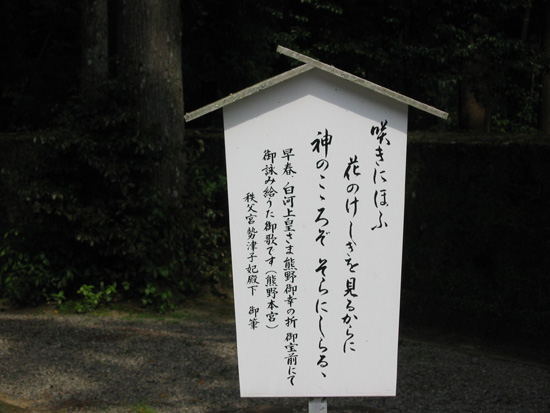 咲きにほふ
花のけしきを見るからに
神のこころぞ そらにしらるゝ
早春、白河上皇さま熊野御幸の折 御宝前にて
御詠み給うた御歌です(熊野本宮)
秩父宮勢津子妃殿下 御筆